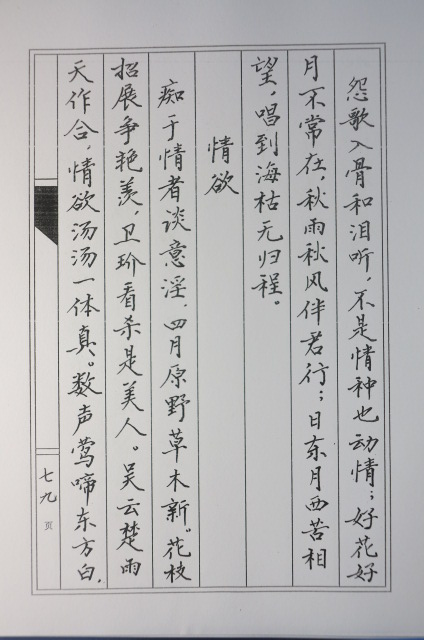 怨歌入骨和泪听，不是情种也动情；好花好
月不常在，秋雨秋风伴君行；日东月西苦相
望，唱到海枯无归程。
情欲
痴于情者谈意淫，四月原野草木新。花枝
招展争艳羡，卫玠看杀是美人。吴云楚雨
天作合，情欲汤汤一体真。数声莺啼东方白，
七九页